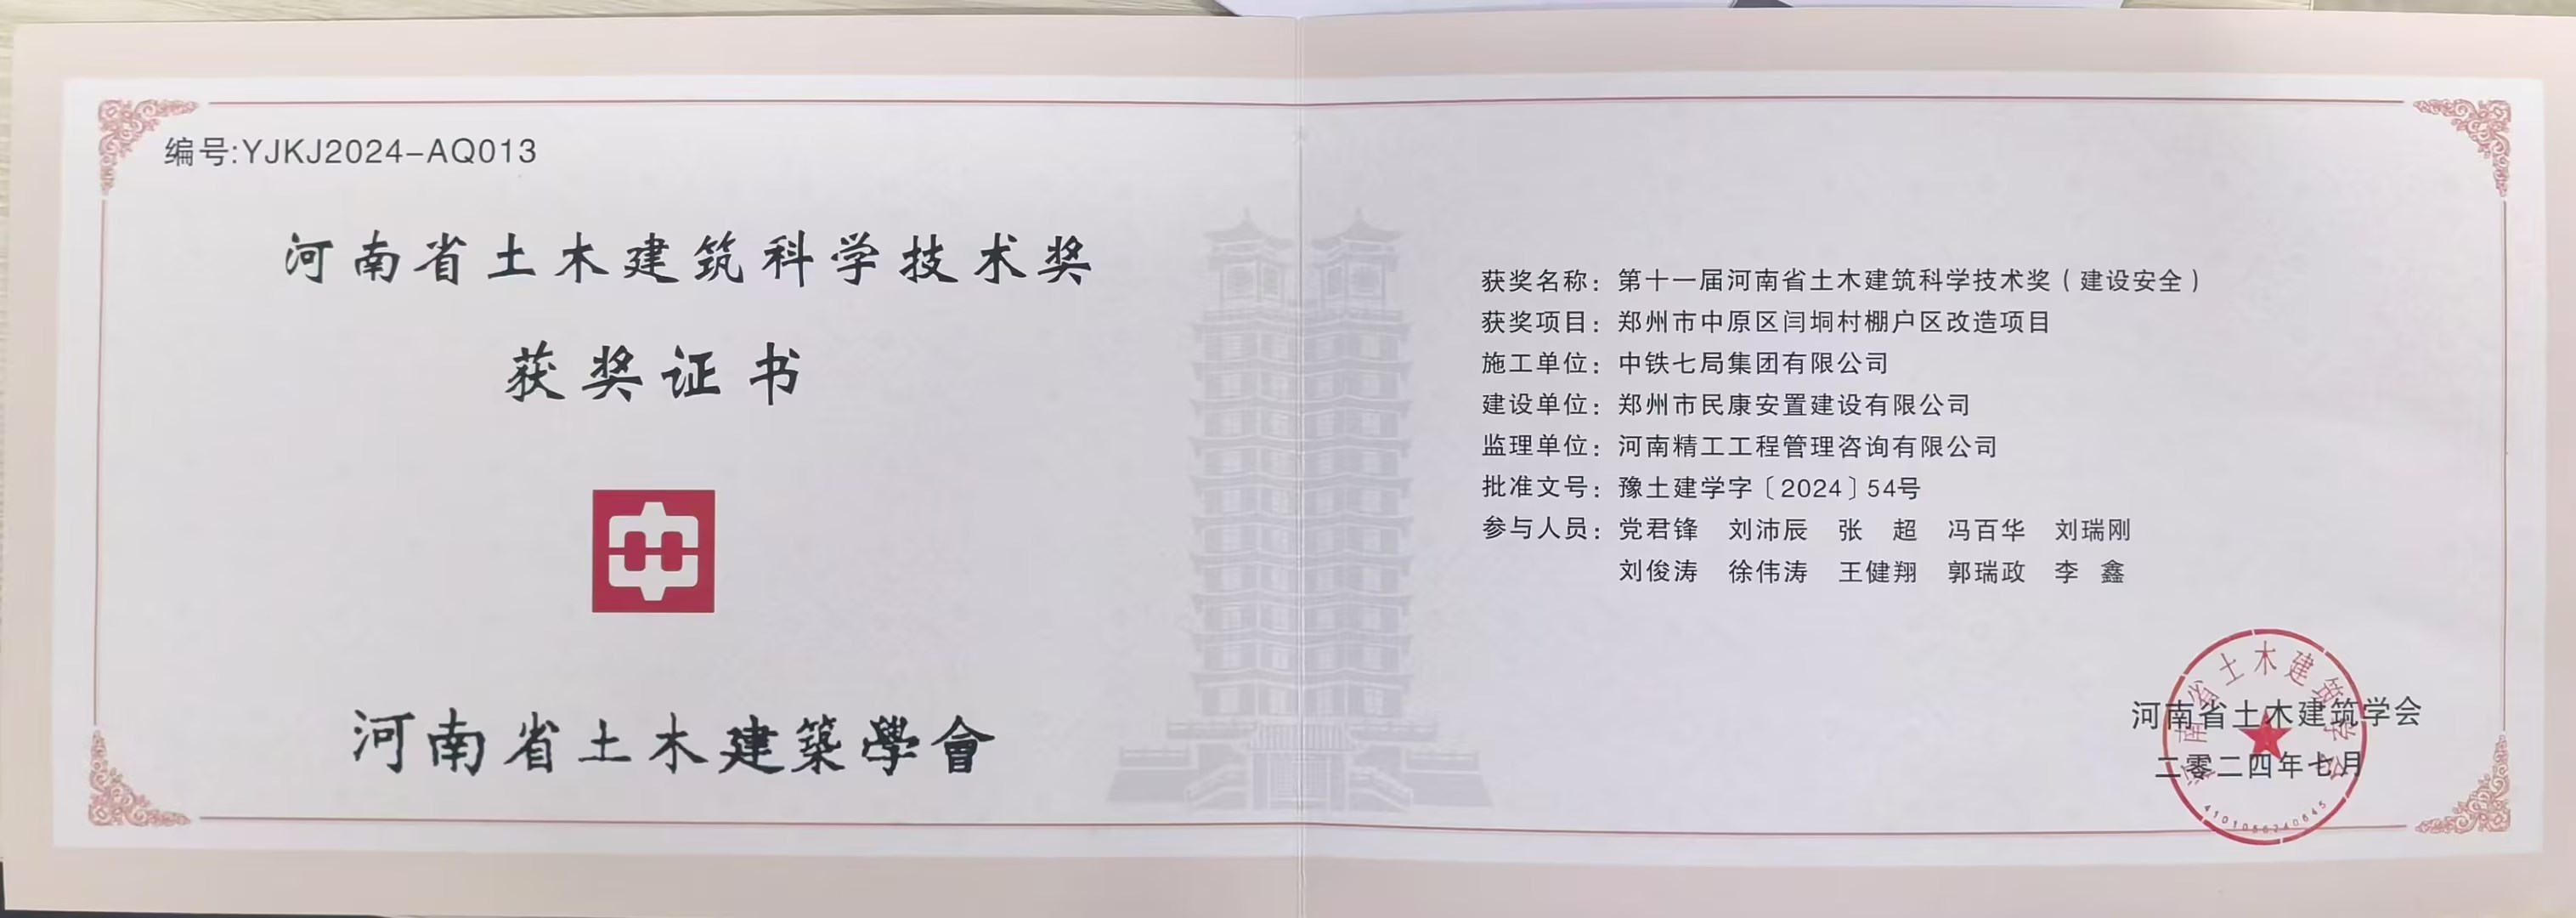 编号:YJKJ2024-AQ013
河南省土木建筑科学技术奖
获奖证书
河南省土木建築學會
获奖名称：第十一届河南省土木建筑科学技术奖（建设安全）
获奖项目：郑州市中原区闫垌村棚户区改造项目
施工单位：中铁七局集团有限公司
建设单位：郑州市民康安置建设有限公司
监理单位：河南精工工程管理咨询有限公司
批准文号：豫土建学字〔2024〕54号
参与人员：党君锋 刘沛辰 张 超 冯百华 刘瑞刚
刘俊涛 徐伟涛 王健翔 郭瑞政 李 鑫
河南省土木建筑学会
二零二四年七月
河南省土木建筑学会